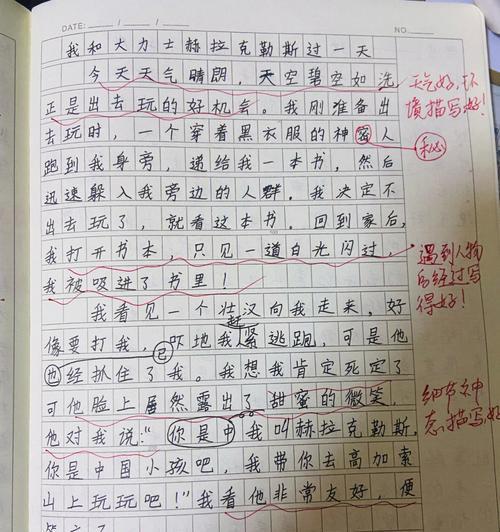 DATE: / /
NO.
我和大力士赫拉克勒斯过一天
今天天气晴朗，天空碧空如洗，
正是出去玩的好机会。我刚准备出
去玩时，一个穿着黑衣服的神密人
跑到我身旁，递给我一本书，然后
迅速躲入我旁边的人群。我决定不
出去玩了，就看这本书。回到家后，
我打开书本，只见一道白光闪过，
我被吸进了书里！
我看见一个壮汉向我走来，好
像要打我，吓地我赶紧逃跑，可是他
已经抓住了我。我想我肯定死定了
可他脸上居然露出了甜蜜的微笑，
他对我说："你是中我叫赫拉克勒斯，
你是中国小孩吧，我带你去高加索
山上玩玩吧！"我看他非常友好，便
天气好，环
境描写好！
秘
遇到人物
后经过写
得好！
描写好